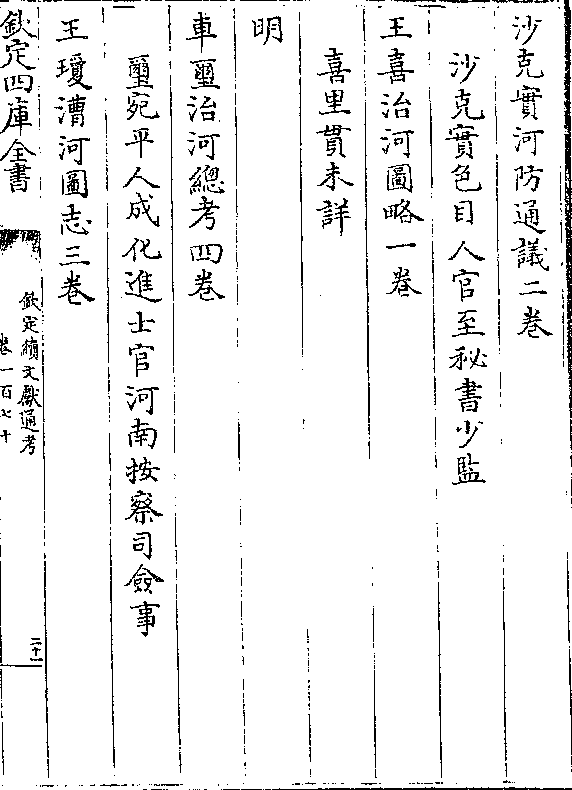 沙克實河防通議二卷
沙克實色目人官至秘書少監
王喜治河圖略一卷
喜里貫未詳
明
車璽治河總考四卷
璽宛平人成化進士官河南按察司僉事
王瓊漕河圖志三卷
欽定四庫全書
欽定續文獻通考
卷一百七十
二十一